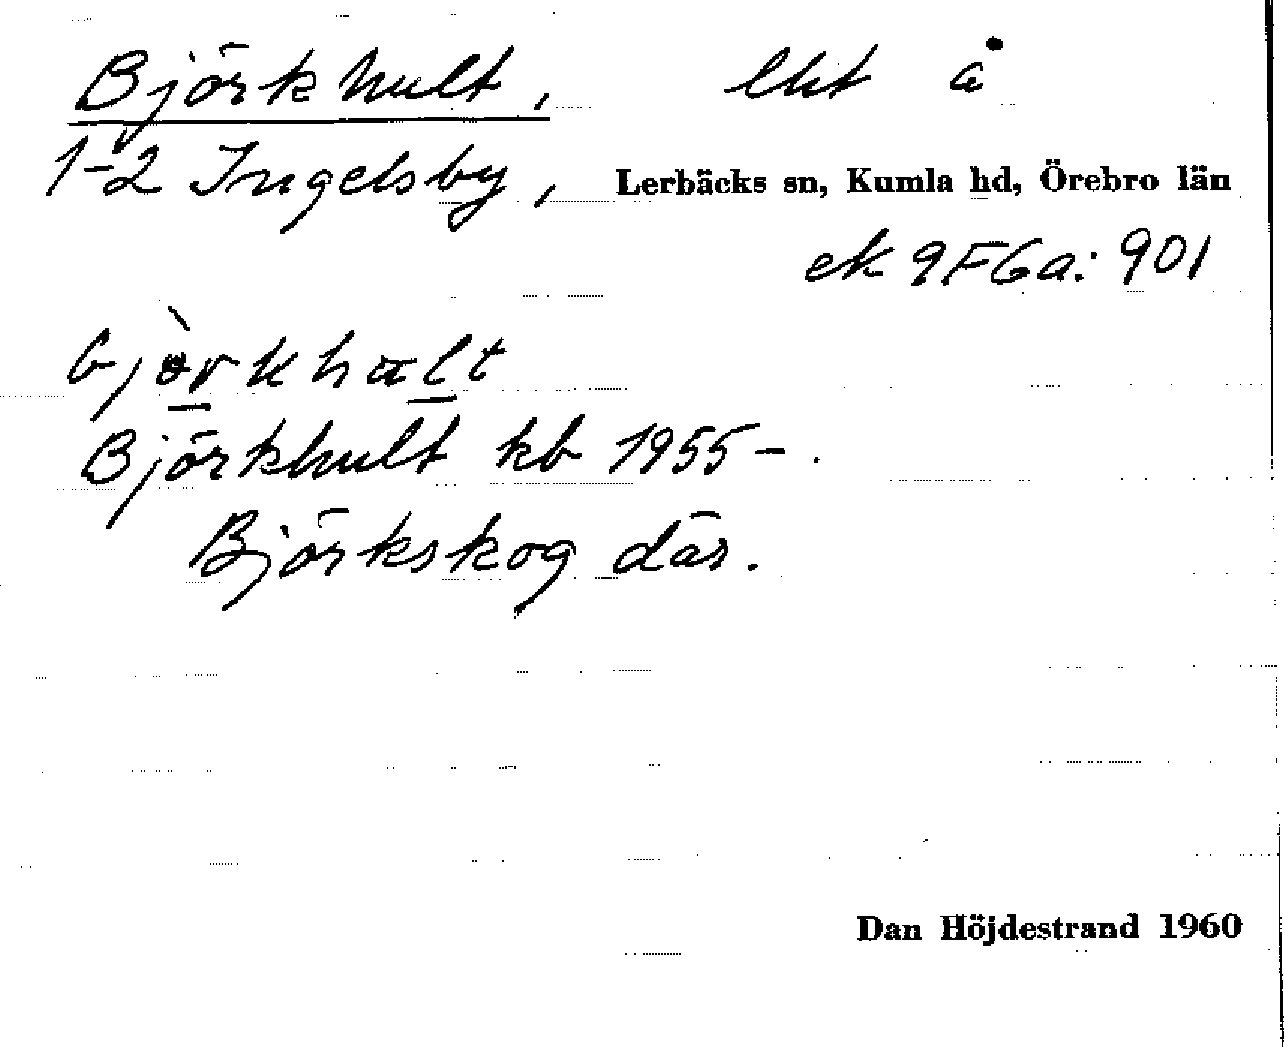 Björkhult, lht å
1-2 Ingelsby, Lerbäcks sn, Kumla hd, Örebro län
ek 9F6a: 901
bjò̈rkhalt
Björkhult kb 1955-.
Björkskog där.
Dan Höjdestrand 1960